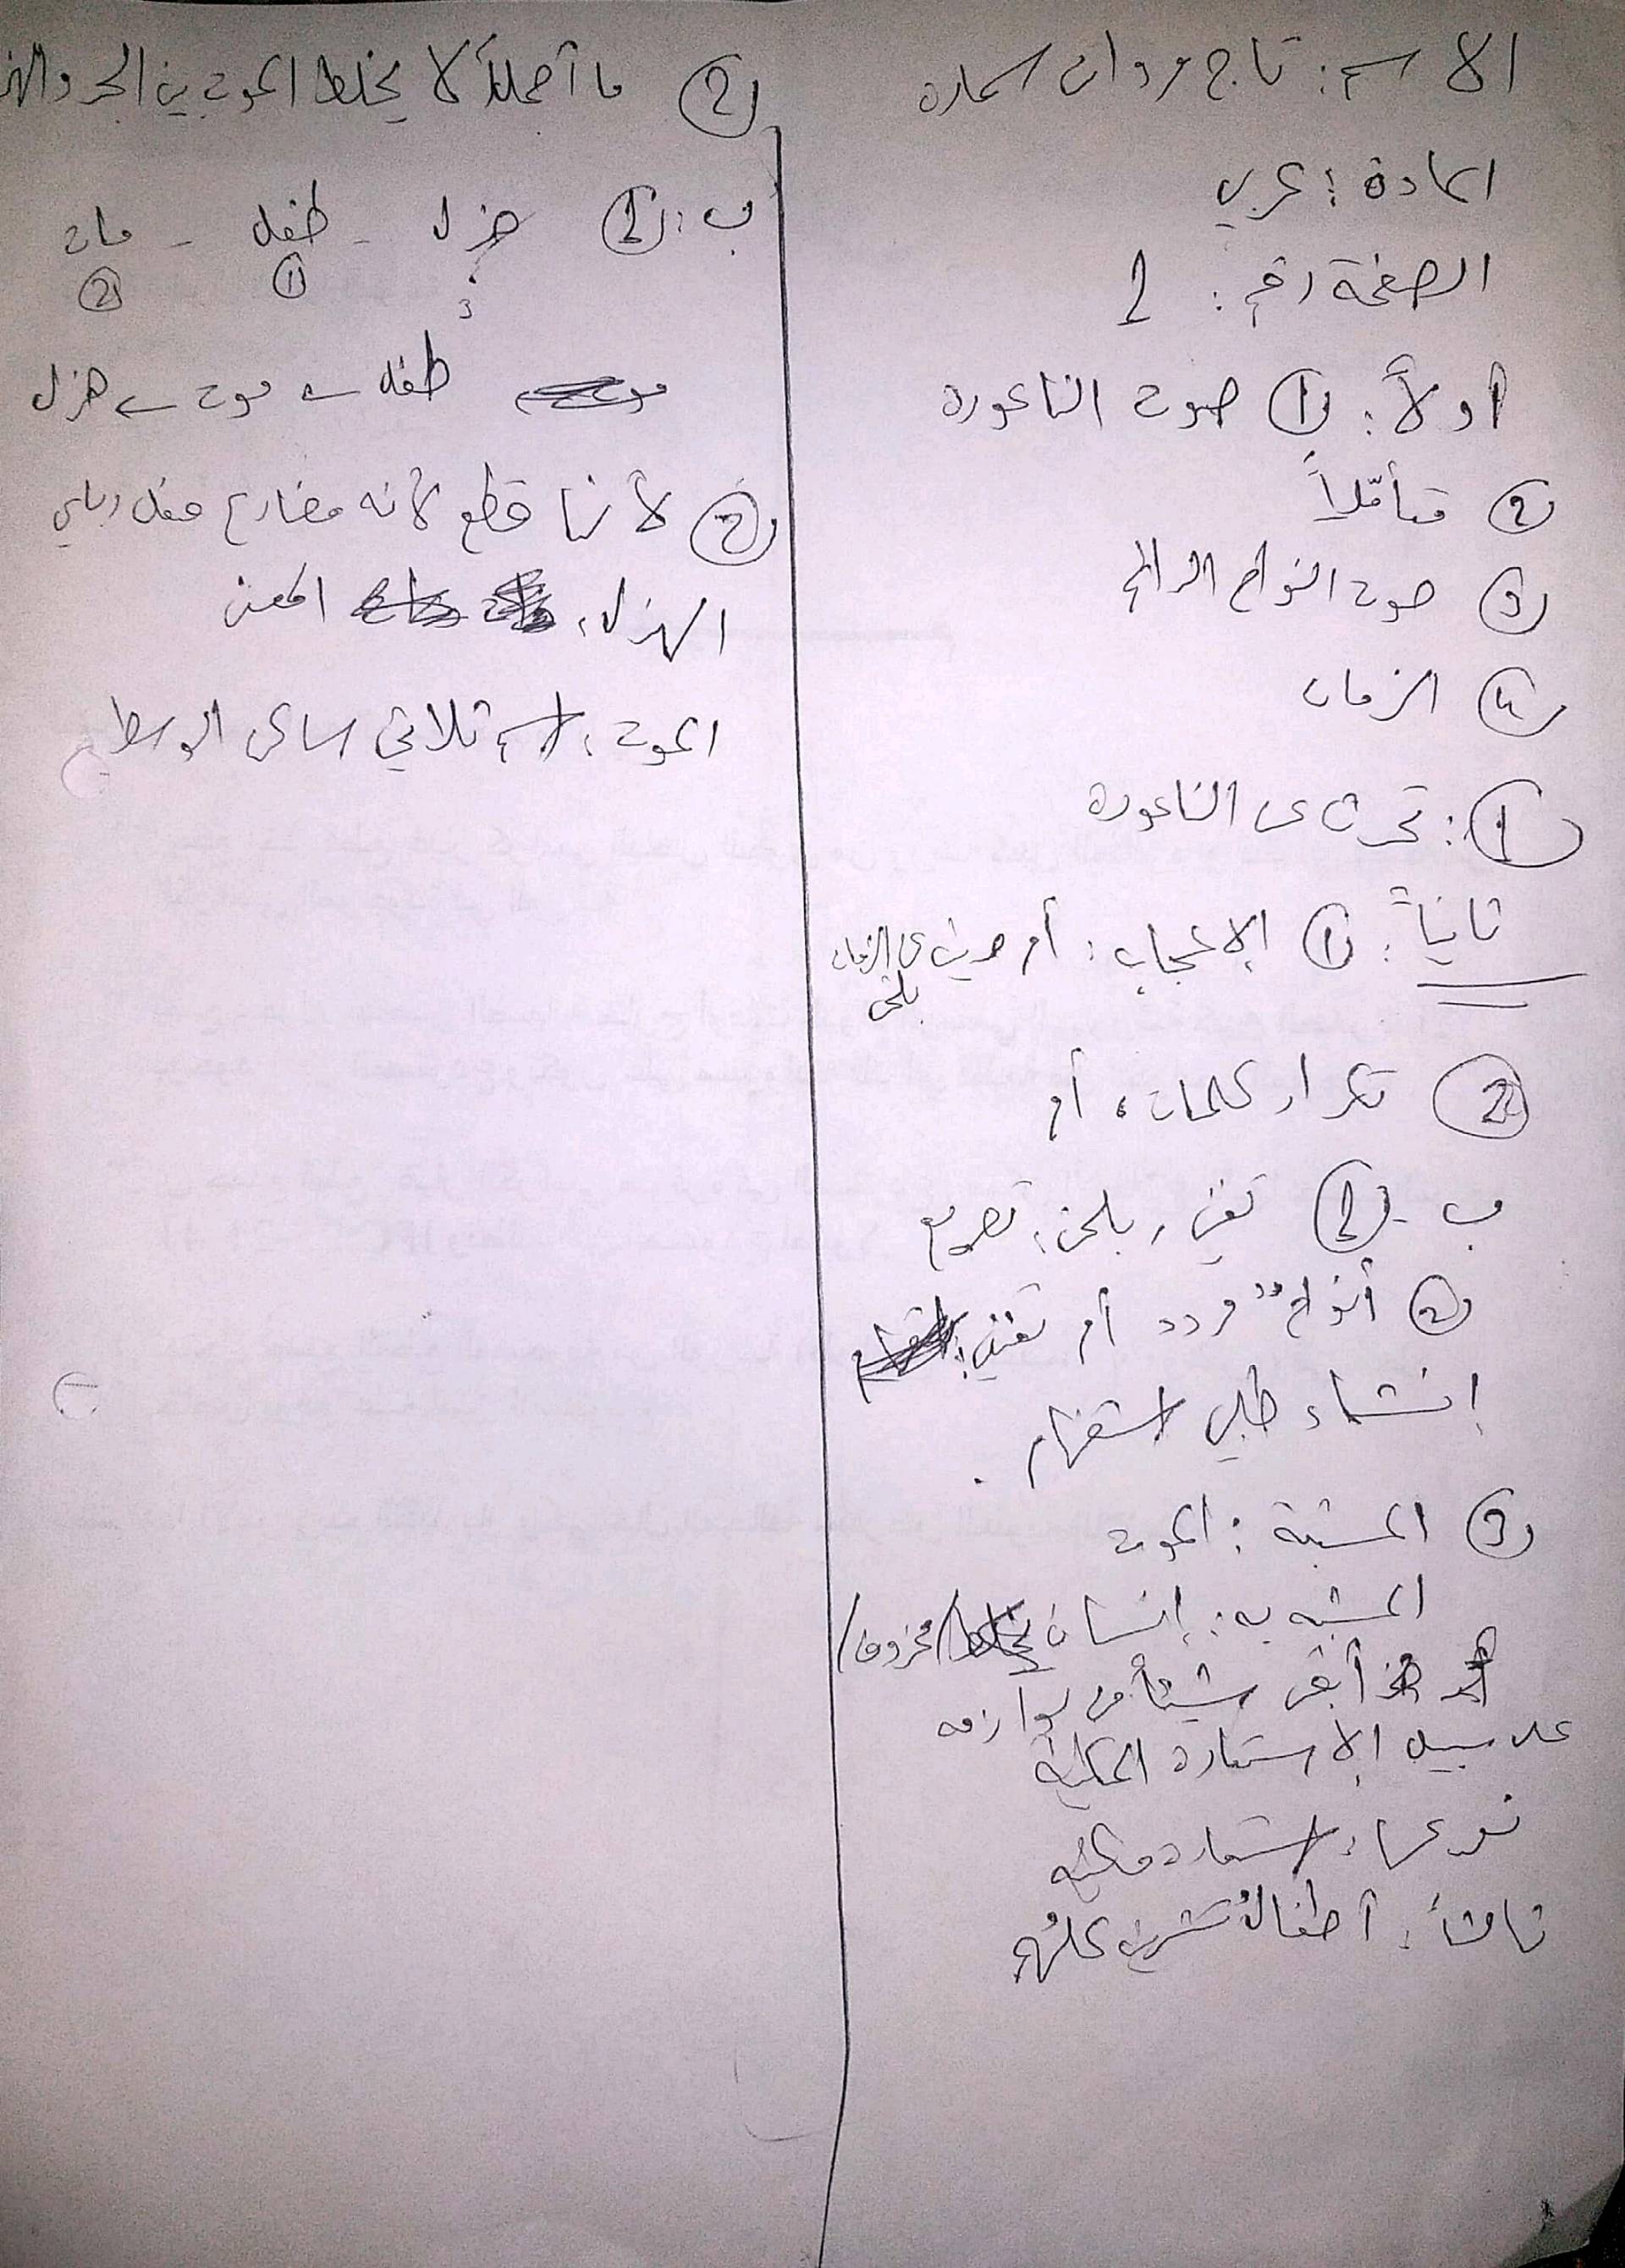 الاسم: تاج مروان اسمارة
المادة: عربي
الصفحة رقم: 1
أولاً: 1 صوت الناعورة
2 متأملاً
3 صوت النواح الدائم
4 الزمان
1: تحدث عن الناعورة
ثانياً: 1 الإعجاب: أم حديث عن الزمان
بلحن
2 تكرار كلمات، أم
ب - 1 تغني، بلحن، تصريع
2 أنواح مردد أم تغني:
إنشاء طلبي استفهام.
3 المشبه: الموت
المشبه به: إنسان /محذوف/
أبقى شيئاً من لوازمه
على سبيل الاستعارة المكنية
نوعها، استعارة مكنية
ثالثاً: أطفالُ تشرين كلهم
2 ما أجمل ألا يخلط الموت بين الجد والهزل
ب: 1 هزل - طفل - مات
3 1 2
طفل ← موت ← هزل
2 لأن قطع لأنه مضارع فعل رباعي
الهزل، المعنى
الموت، اسم ثلاثي ساكن الوسط